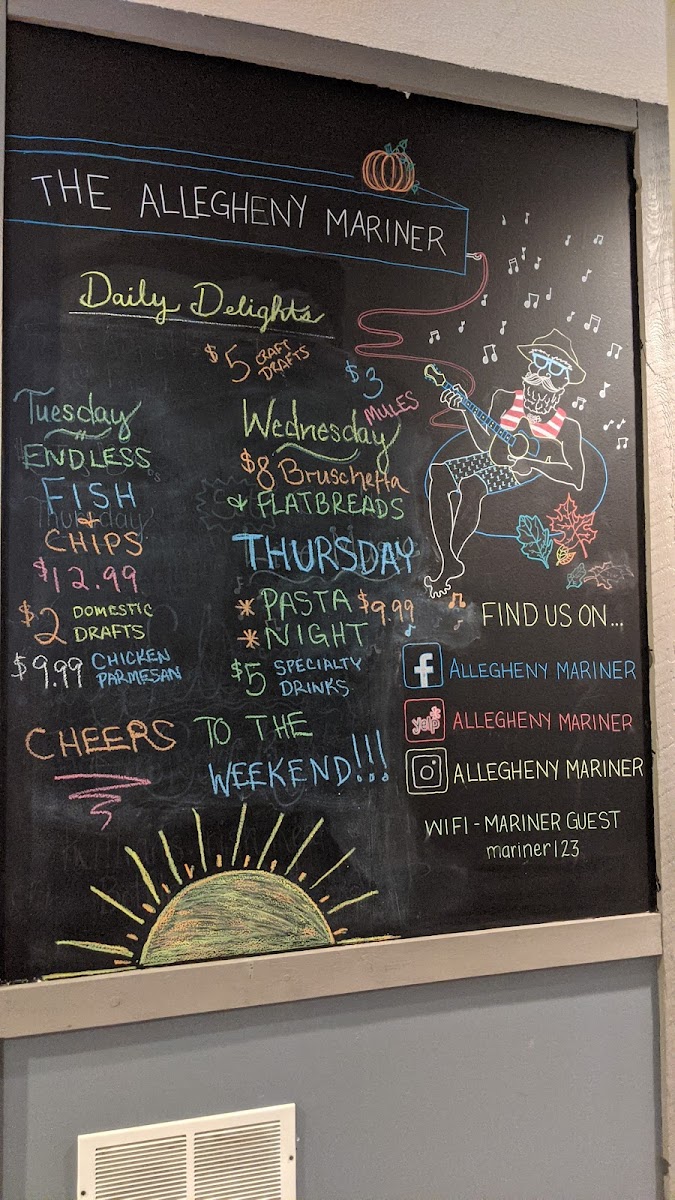 THE ALLEGHENY MARINER
Daily Delights
$5 CRAFT DRAFTS
$3 MULES
Tuesday
ENDLESS
FISH
&
CHIPS
$12.99
$2 DOMESTIC DRAFTS
$9.99 CHICKEN PARMESAN
Wednesday
$8 Bruschetta
& FLATBREADS
THURSDAY
* PASTA $9.99
* NIGHT
$5 SPECIALTY DRINKS
CHEERS TO THE
WEEKEND!!!
FIND US ON...
f ALLEGHENY MARINER
yelp ALLEGHENY MARINER
ALLEGHENY MARINER
WIFI - MARINER GUEST
mariner123